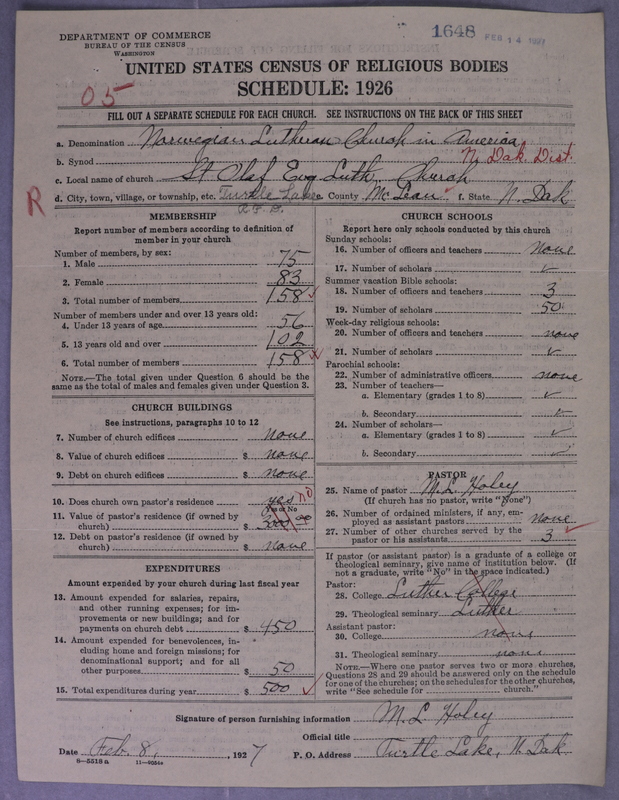 DEPARTMENT OF COMMERCE
BUREAU OF THE CENSUS
WASHINGTON
1648
FEB 14 1927
UNITED STATES CENSUS OF RELIGIOUS BODIES
SCHEDULE: 1926
05
FILL OUT A SEPARATE SCHEDULE FOR EACH CHURCH. SEE INSTRUCTIONS ON THE BACK OF THIS SHEET
a. Denomination Norwegian Lutheran Church in America
b. Synod N. Dak. Dist.
c. Local name of church St Olaf Evg Luth. Church
R
d. City, town, village, or township, etc. Turtle Lake e. County McLean f. State N. Dak
MEMBERSHIP
Report number of members according to definition of
member in your church
Number of members, by sex:
1. Male 75
2. Female 83
3. Total number of members 158
Number of members under and over 13 years old:
4. Under 13 years of age 56
5. 13 years old and over 102
6. Total number of members 158
NOTE.—The total given under Question 6 should be the
same as the total of males and females given under Question 3.
CHURCH BUILDINGS
See instructions, paragraphs 10 to 12
7. Number of church edifices none
8. Value of church edifices $ none
9. Debt on church edifices $ none
10. Does church own pastor's residence yes no
Yes or No
11. Value of pastor's residence (if owned by
church) $ 3000 00
12. Debt on pastor's residence (if owned by
church) $ none
EXPENDITURES
Amount expended by your church during last fiscal year
13. Amount expended for salaries, repairs,
and other running expenses; for im-
provements or new buildings; and for
payments on church debt $ 450
14. Amount expended for benevolences, in-
cluding home and foreign missions; for
denominational support; and for all
other purposes $ 50
15. Total expenditures during year $ 500
CHURCH SCHOOLS
Report here only schools conducted by this church
Sunday schools:
16. Number of officers and teachers none
17. Number of scholars ✓
Summer vacation Bible schools:
18. Number of officers and teachers 3
19. Number of scholars 50
Week-day religious schools:
20. Number of officers and teachers none
21. Number of scholars ✓
Parochial schools:
22. Number of administrative officers none
23. Number of teachers—
a. Elementary (grades 1 to 8) ✓
b. Secondary ✓
24. Number of scholars—
a. Elementary (grades 1 to 8) ✓
b. Secondary ✓
PASTOR
25. Name of pastor M. L. Holey
(If church has no pastor, write "None")
26. Number of ordained ministers, if any, em-
ployed as assistant pastors none
27. Number of other churches served by the
pastor or his assistants 3
If pastor (or assistant pastor) is a graduate of a college or
theological seminary, give name of institution below. (If
not a graduate, write "No" in the space indicated.)
Pastor:
28. College Luther College
29. Theological seminary Luther
Assistant pastor:
30. College none
31. Theological seminary none
NOTE.—Where one pastor serves two or more churches,
Questions 28 and 29 should be answered only on the schedule
for one of the churches; on the schedules for the other churches,
write "See schedule for church."
Signature of person furnishing information M. L. Holey
Official title
Date Feb. 8, 1927 P. O. Address Turtle Lake, N. Dak
8—5518 a 11—9054